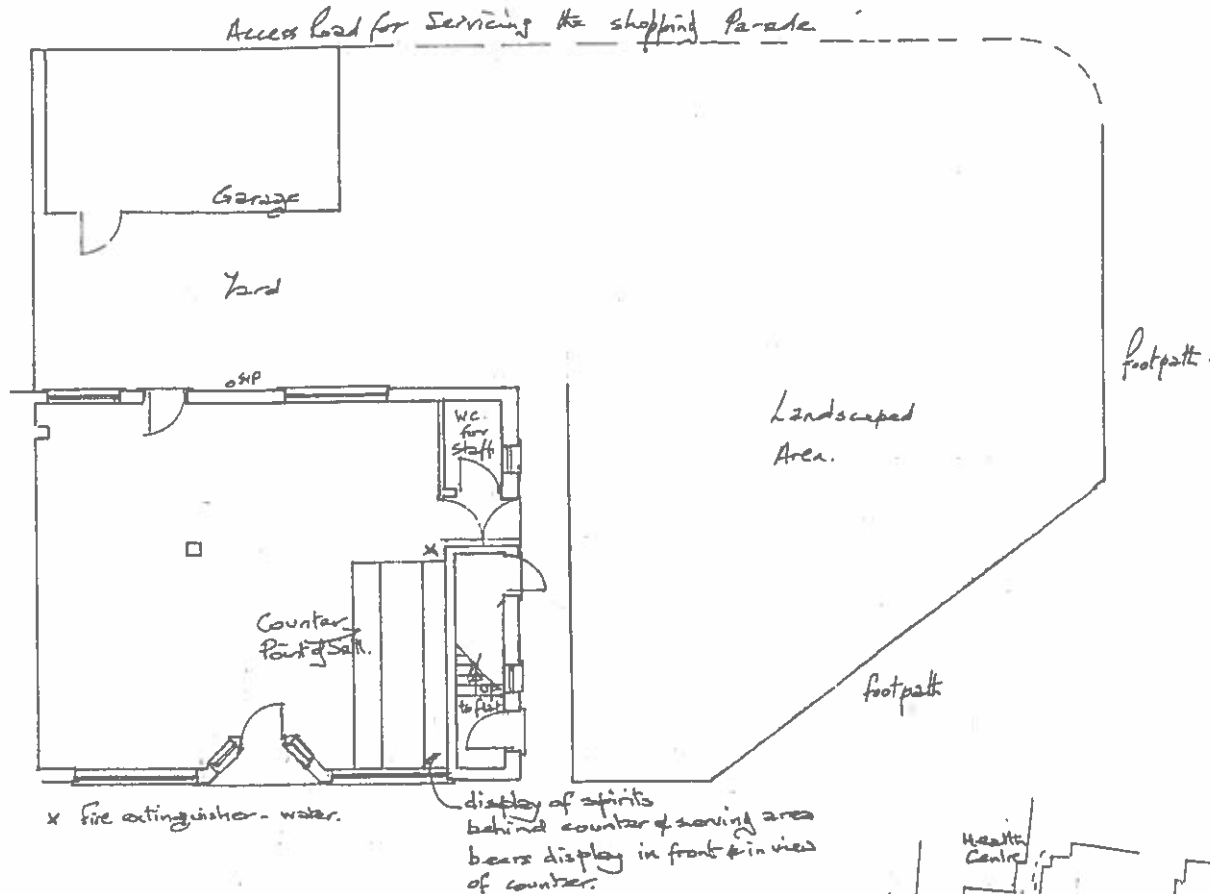 Access Road for Servicing the shopping Parade
Garage
Yard
footpath.
o SVP
W.C.
for
staff.
Landscaped
Area.
x
Counter
Point of Sell.
up
to flat
footpath
x fire extinguisher - water.
display of spirits
behind counter & serving area
beers display in front & in view
of counter.
Health
Centre